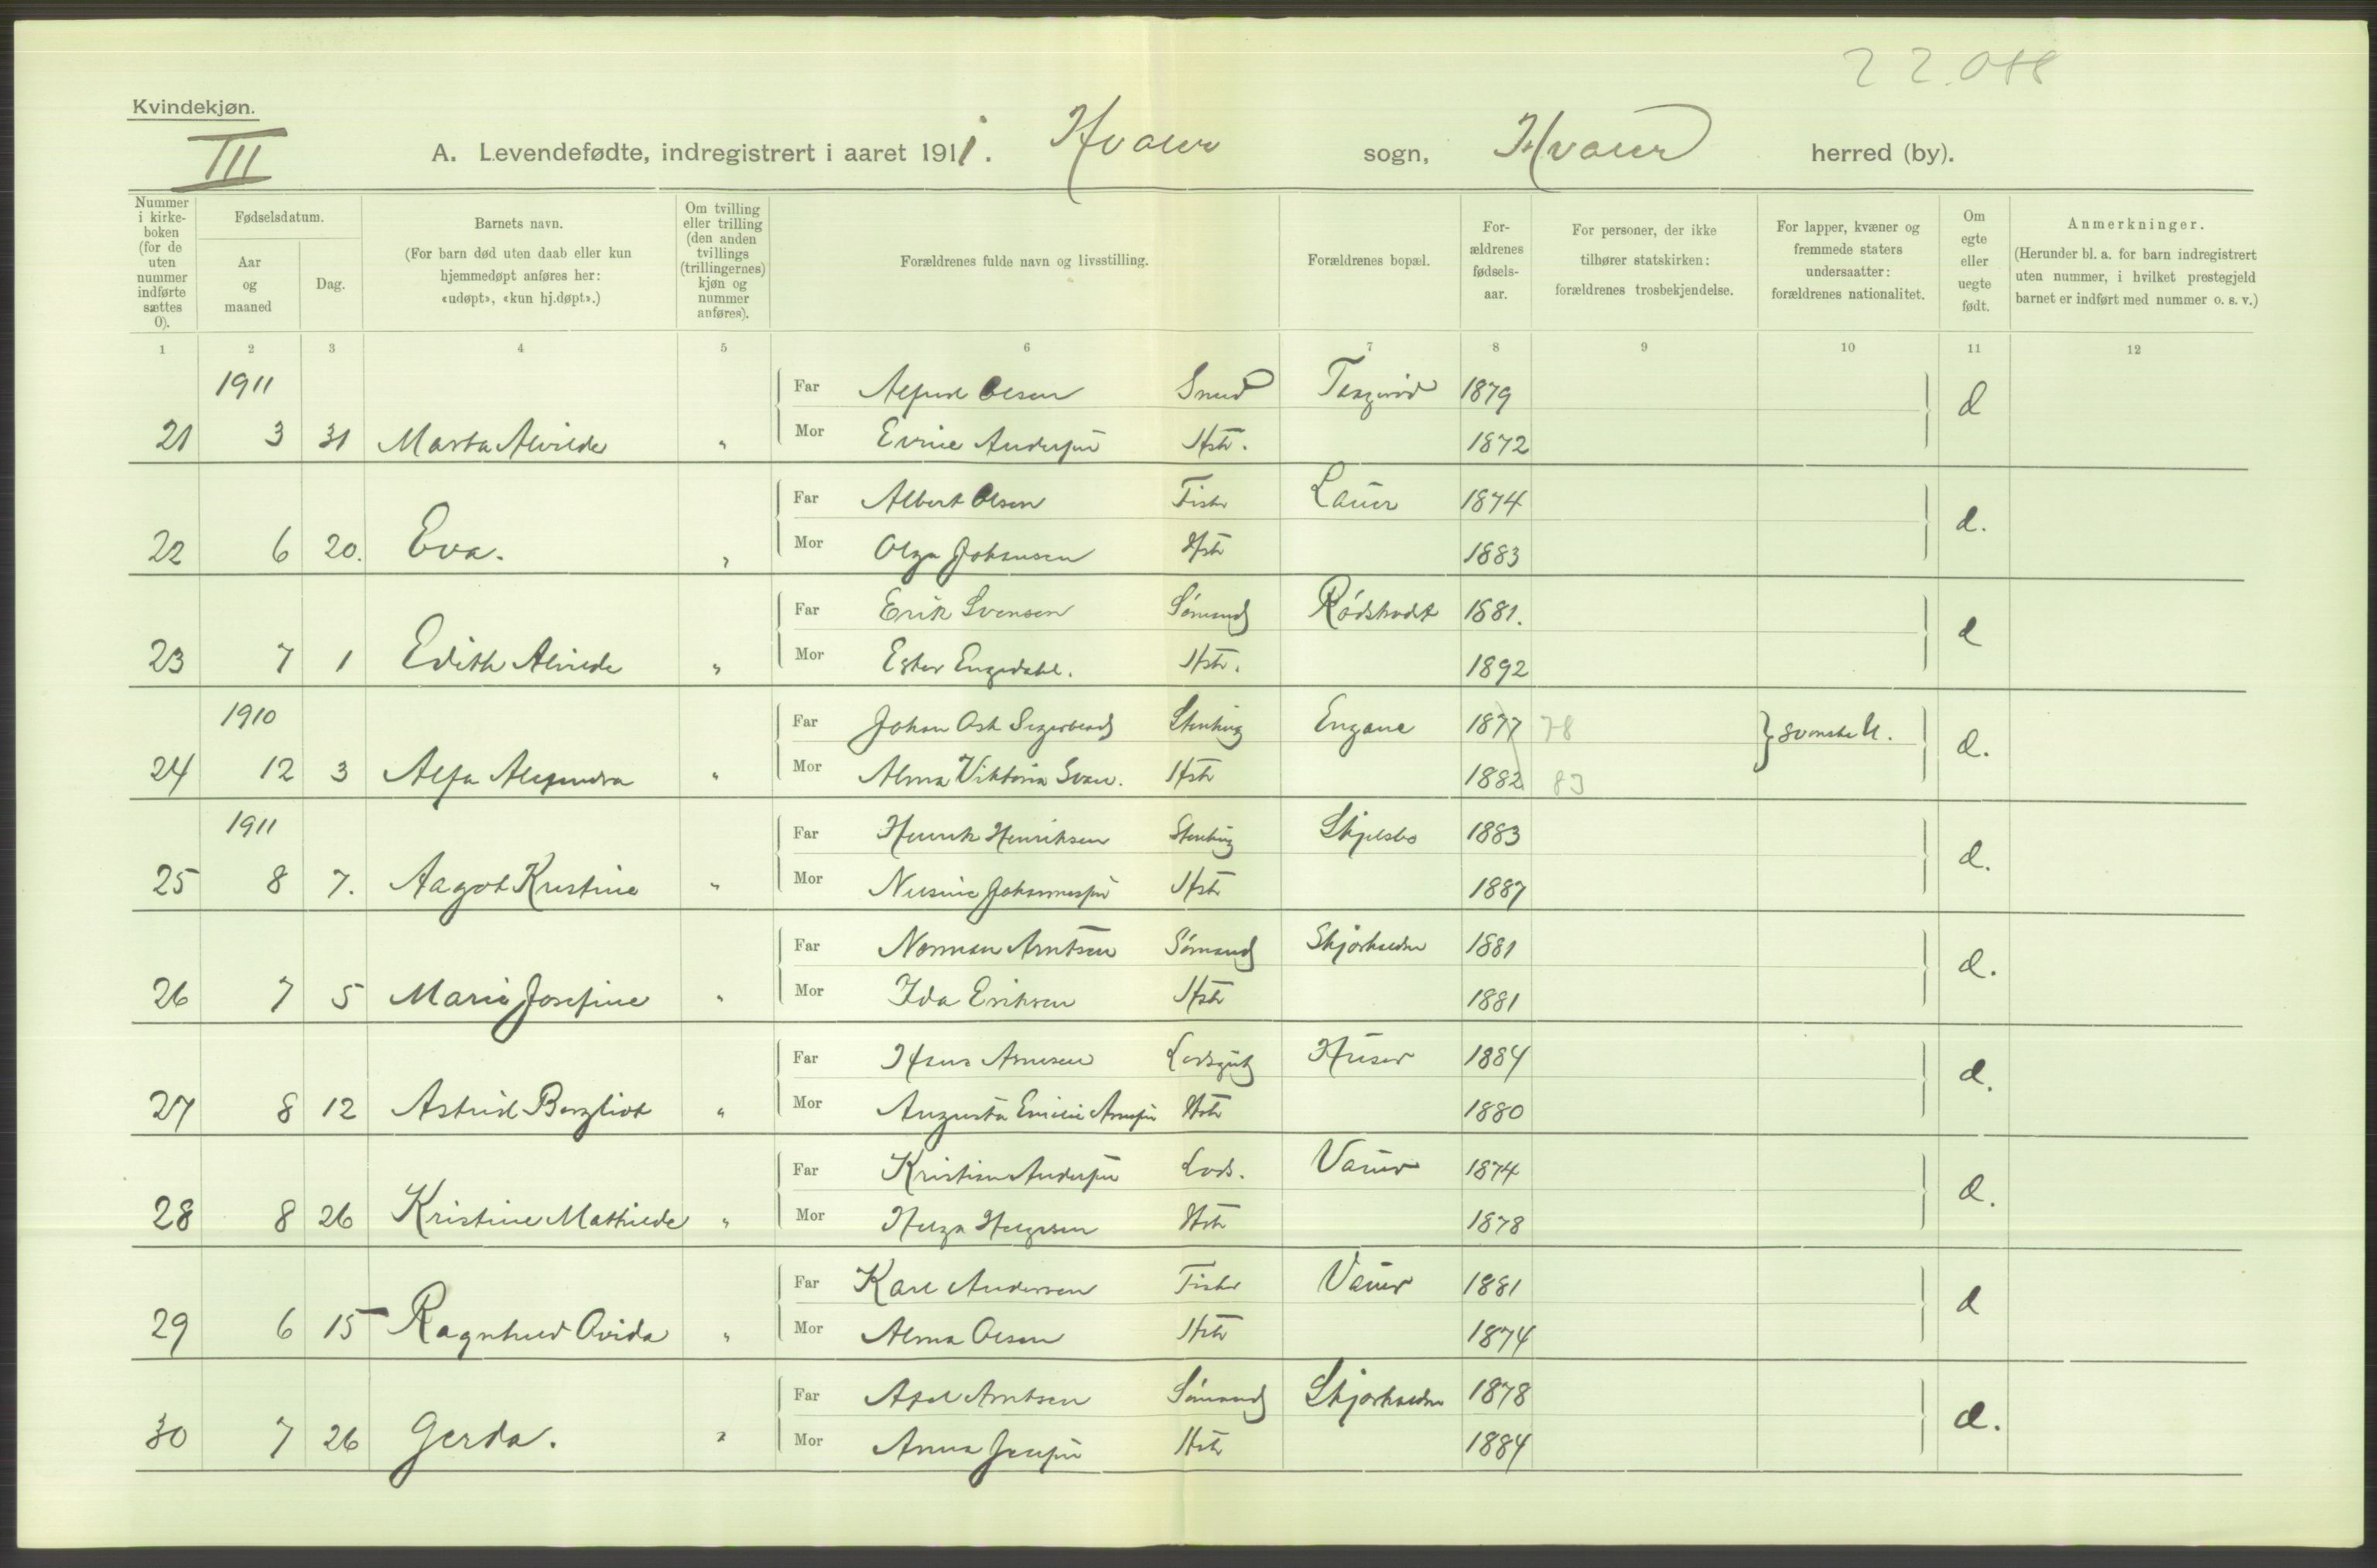 22.088
Kvindekjøn.
III
A. Levendefødte, indregistrert i aaret 1911. Hvaler sogn, Hvaler herred (by).
Nummer i kirkeboken (for de uten nummer indførte sættes 0).
Fødselsdatum.
Aar og maaned
Dag.
Barnets navn.
(For barn død uten daab eller kun hjemmedøpt anføres her: «udøpt», «kun hj.døpt».)
Om tvilling eller trilling (den anden tvillings (trillingernes) kjøn og nummer anføres).
Forældrenes fulde navn og livsstilling.
Forældrenes bopæl.
For-ældrenes fødsels-aar.
For personer, der ikke tilhører statskirken: forældrenes trosbekjendelse.
For lapper, kvæner og fremmede staters undersaatter: forældrenes nationalitet.
Om egte eller uegte født.
Anmerkninger.
(Herunder bl. a. for barn indregistrert uten nummer, i hvilket prestegjeld barnet er indført med nummer o. s. v.)
1 2 3 4 5 6 7 8 9 10 11 12
1911 Far Alfred Olsen Smed 1879
21 3 31 Marta Alvilde " Mor Evine Andersen Hstr. 1872
Far Albert Olsen Fisker Lauer 1874
22 6 20. Eva. " Mor Olga Johansen Hstr 1883
Far Erik Svensen Sømand Rødshodt 1881.
23 7 1 Edith Alvilde " Mor Ester Engedahl. Hstr. 1892
1910 Far Johan Osk Stenhug Engene 1877 78 svenske U.
24 12 3 Alfa Alexandra " Mor Alma Viktoria Svan. Hstr 1882 83
1911 Far Henrik Henriksen Stenhug Skjelsbo 1883
25 8 7. Aagot Kristine " Mor Johannesen Hstr 1887
Far Norman Arntsen Sømand Skjærhalden 1881
26 7 5 Marie Josefine " Mor Ida Eriksen Hstr 1881
Far Hans Arnesen Lodsgut Huser 1884
27 8 12 Astrid Bergliot " Mor Augusta Emilie Arnesen Hstr 1880
Far Kristian Andersen Lods. Vauer 1874
28 8 26 Kristine Mathilde " Mor Helga Helgesen Hstr 1878
Far Karl Andersen Fisker Vauer 1881
29 6 15 Ragnhild Ovida " Mor Alma Olsen Hstr 1874
Far Axel Arntsen Sømand Skjærhalden 1878
30 7 26 Gerda. " Mor Anna Jensen Hstr 1884